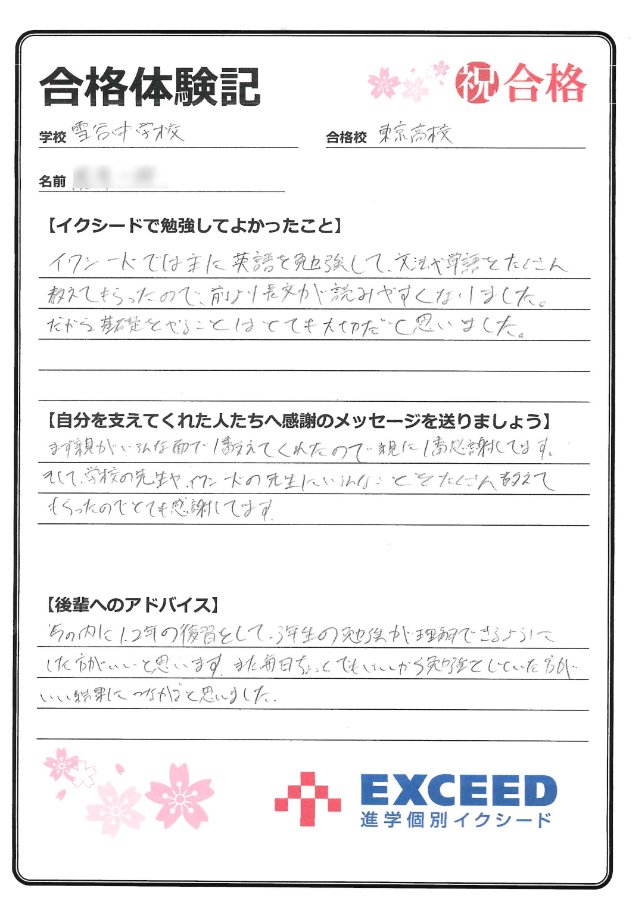 合格体験記
祝 合格
学校 雪谷中学校
合格校 東京高校
名前
【イクシードで勉強してよかったこと】
イクシードでは主に英語を勉強して、文法や単語をたくさん
教えてもらったので、前より長文が読みやすくなりました。
だから基礎をやることはとても大切だと思いました。
【自分を支えてくれた人たちへ感謝のメッセージを送りましょう】
まず親がいろんな面で1番支えてくれたので親に1番感謝してます。
そして、学校の先生や、イクシードの先生にいろんなことをたくさん教えて
もらったのでとても感謝してます
【後輩へのアドバイス】
今の内に1.2年の復習をして、3年生の勉強が理解できるように
した方がいいと思います。また毎日ちょっとでもいいから勉強をしていた方が
いい結果につながると思いました.
EXCEED
進学個別イクシード